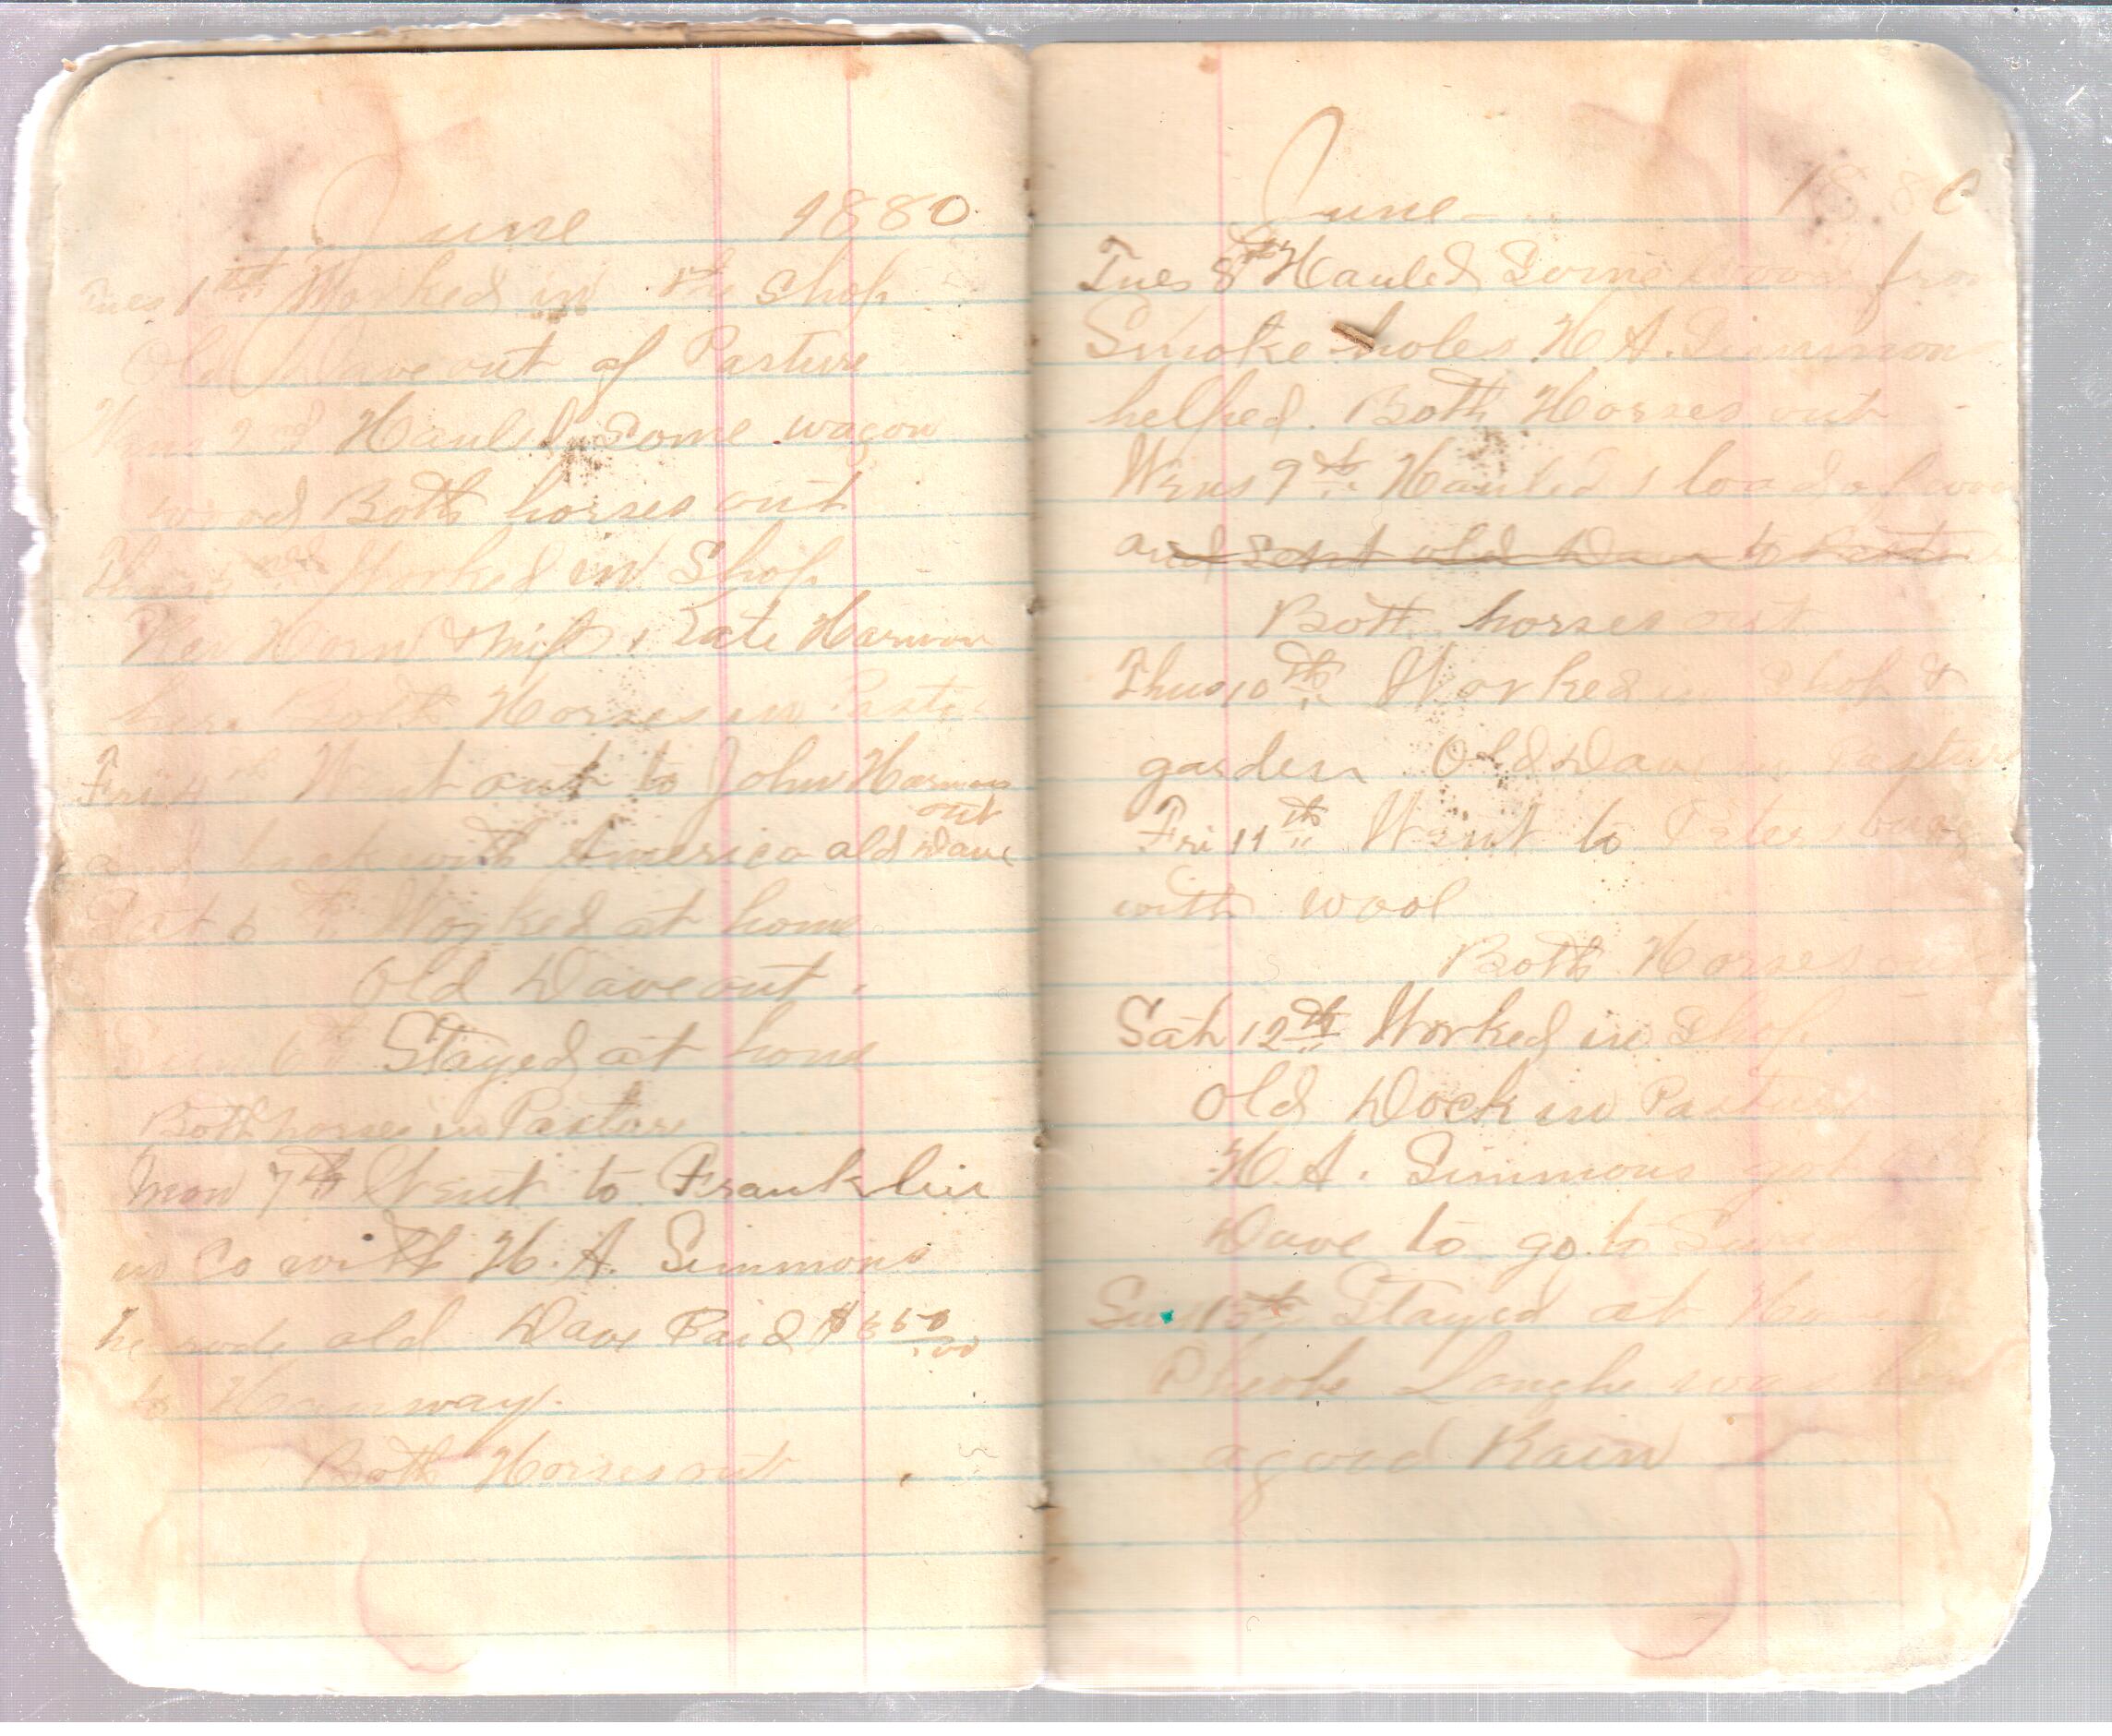 June 1880
Tues 1th Worked in the Shop
Old Dave out of Pasture
Wens 2nd Hauled Some wagon
wood Both horses out
Thurs Worked in Shop
Horn & wife, Kate Harmon
here Both Horses in
Fri 4th Went out to John Harmons
out
and back with America old Dave
Sat Worked at home
Old Dave out.
Sun 6th Stayed at home
Both horses in Pasture
Mon 7th Went to Franklin
in Co with H. A. Simmons
he rode old Dave Paid
to Hanway.
Both Horses out
June 1880
Tues 8th Hauled Some from
Smoke holes. H. A. Simmons
helped. Both Horses out
Wens 9th Hauled 1 load of wood
and Sent old Dave to Pasture
Both horses out
Thur 10th Worked in Shop &
garden Old Dave in Pasture
Fri 11th Went to Petersburg
with wool
Both Horses
Sat 12th Worked in Shop.
Old Dock in Pasture
H. A. Simmons got
Dave to go to
Sun 13th Stayed at Home
Pheobe was here
a good Rain